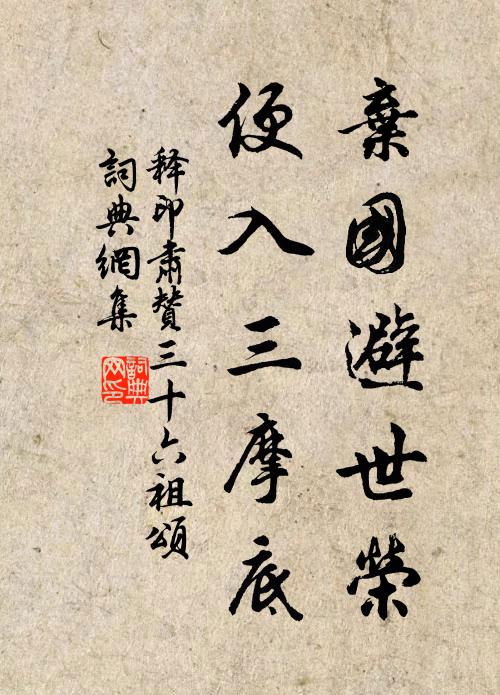 棄國避世榮
便入三摩底
释印肅贊三十六祖頌
詞典網集
詞典网印